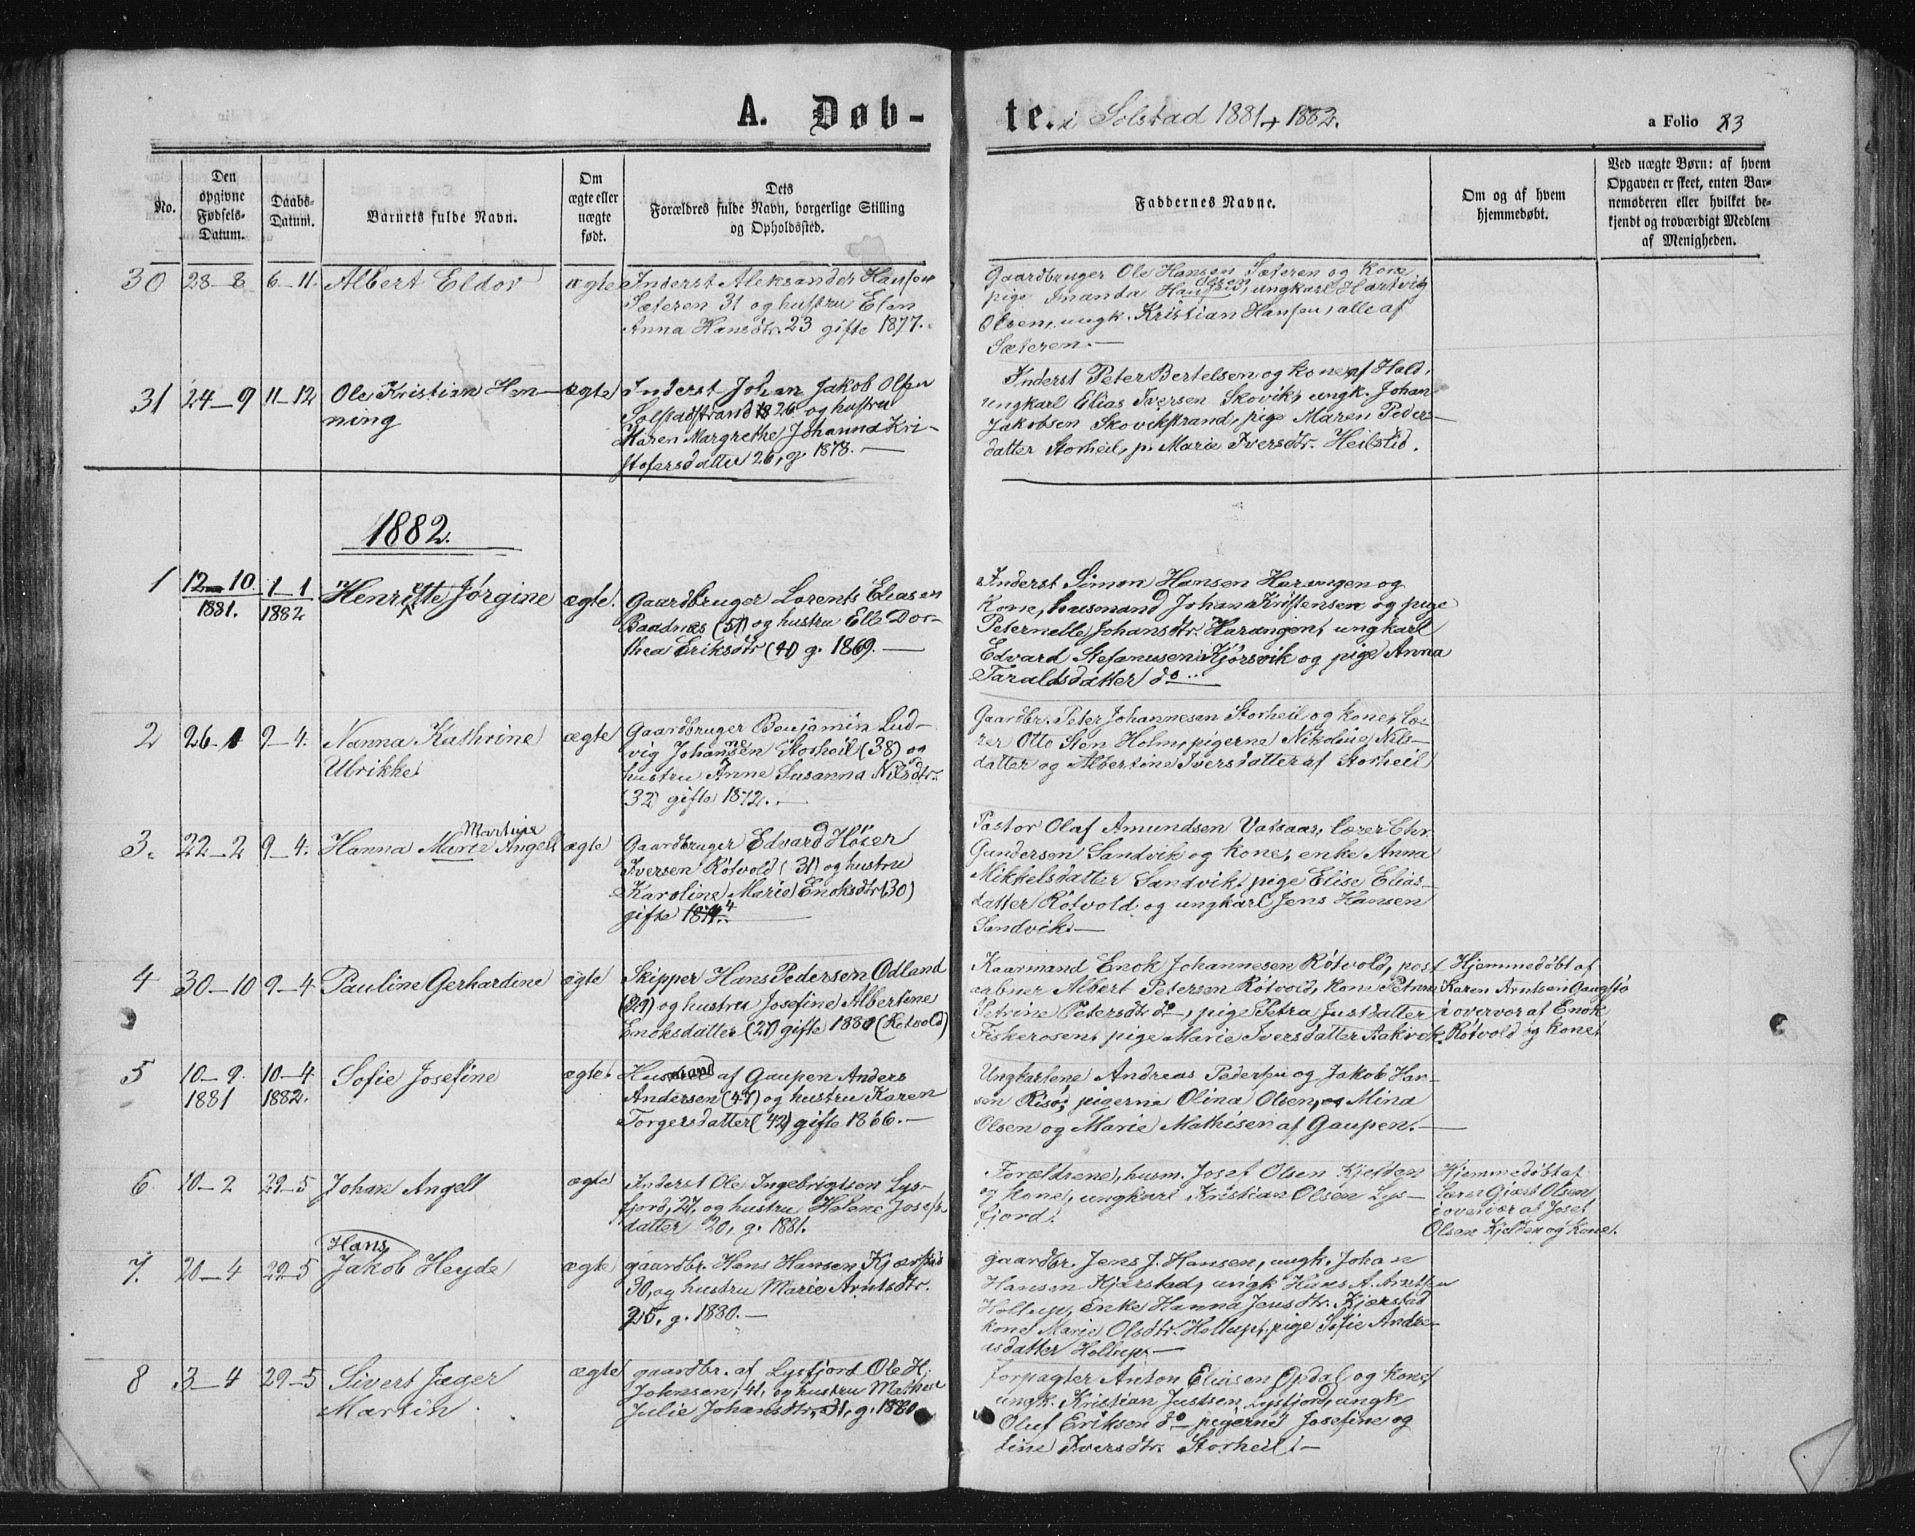 A. Døb-
te. i Solstad 1881 + 1882.
a Folio 83
No.
Den
opgivne
Fødsels-
Datum.
Daabs-
Datum.
Barnets fulde Navn.
Om
ægte eller
uægte
født.
Dets
Forældres fulde Navn, borgerlige Stilling
og Opholdssted.
Faddernes Navne.
Om og af hvem
hjemmedøbt.
Ved uægte Børn: af hvem
Opgaven er skeet, enten Bar-
nemoderen eller hvilket be-
kjendt og troværdigt Medlem
af Menigheden.
30 28-8 6-11. Albert Eldor ægte
Inderst Aleksander Hansen
Sæteren 31 og hustru Elen
Anna Hansdtr. 23 gifte 1877.
Gaardbruger Ole Hansen Sæteren og kone,
pige Amanda Olsen, ungkarl Hartvig
Olsen, ungk. Kristian Hansen, alle af
Sæteren.—
31 24-9 11-12 Ole Kristian Hen-
ning
ægte
Inderst Johan Jakob Olsen
Solstadstrand 26 og hustru
Karen Margrethe Johanna Kri-
stofersdatter 26, g. 1878.—
Inderst Peter Bertelsen og kone af Hald,
ungkarl Elias Iversen Skovik, ungk. Johan
Jakobsen Skovikstrand, pige Maren Peders-
datter Storheil, p. Marie Iversdtr. Heilstid.
1882.
1 12-10. 1881. 1-1 1882 Henriette Jørgine ægte.
Gaardbruger Lorents Eliasen
Baadnæs (51) og hustru Elle Dor-
thea Eriksdtr (40) g. 1869.—
Inderst Simon Hansen Harangen og
kone, husmand Johan Kristensen og pige
Peternelle Johansdtr. Harangen, ungkarl
Edvard Stefanusen Kjørsvik og pige Anna
Taraldsdatter do..
2 26-1 9-4. Nanna Kathrine
Ulrikke
ægte
Gaardbruger Benjamin Lud-
vig Johannesen Storheil (38) og
hustru Anne Susanna Nilsdtr.
(32) gifte 1872.—
Gaardbr. Peter Johannesen Storheil og kone, læ-
rer Otto Sten Holm, pigerne Nikoline Nils-
datter og Albertine Iversdatter af Storheil
3. 22-2 9-4. Hanna Martine Angell ægte
Gaardbruger Edvard Høier
Iversen Røtvold (31) og hustru
Karoline Marie Enoksdtr (30)
gifte 1874.
Pastor Olaf Amundsen Vatsaas, lærer Chr.
Gundersen Sandvik og kone, enke Anna
Mikkelsdatter Sandvik, pige Elise Elias-
datter Røtvold og ungkarl Jens Hansen
Sandvik.—
4 30-10 9-4 Pauline Gerhardine ægte
Skipper Hans Pedersen Odland
(27) og hustru Josefine Albertine
Enoksdatter (21) gifte 1880 (Rotvold)
Kaarmand Enok Johannesen Røtvold, post
aabner Albert Petersen Røtvold, kone
Petrine Petersdtr do, pige Petra Justdatter
Fiskerosen, pige Marie Iversdatter Aakvik.
Hjemmedøbt af
Karen Arntsen Gangstø
i overvær af Enok
Røtvold og kone.
5 10-9. 1881 10-4 1882. Sofie Josefine ægte.
Husmand af Gaupen Anders
Andersen (47) og hustru Karen
Torgersdatter (42) gifte 1866.—
Ungkarlene Andreas Pedersen og Jakob Han-
sen Risø, pigerne Olina Olsen, Mina
Olsen og Marie Mathisen af Gaupen.—
6. 10-2 29-5 Johan Angell ægte
Inderst Ole Ingebrigtsen Lys-
fjord, 27, og hustru Helene Josefs-
datter 20, g. 1881.
Forældrene, husm. Josef Olsen Kjelden
og kone, ungkarl Kristian Olsen Lys-
fjord.
Hjemmedøbt af
Lærer Giæst Olsen,
i overvær af Josef
Olsen Kjelden og kone.
7. 20-4 29-5 Hans
Jakob Heyde ægte
gaardbr. Hans Hansen Kjærstad
30, og hustru Marie Arntsdtr.
25, g. 1880.—
gaardbr. Jens J. Hansen, ungk. Johan
Hansen Kjærstad, ungk Hans A. Arntsen
Hollup, enke Hanna Jensdtr. Kjærstad
kone Marie Olsdtr. Hollup, pige Sofie Andre-
asdatter Hollup.—
8 3-4 29-5 Sivert Jæger
Martin.
ægte
gaardbr. af Lysfjord Ole H.
Johnsen, 41, og hustru
Julie Johansdtr. 31, g. 1880.
Forpagter Anton Eliasen Opdal og kone,
ungk. Kristian Justsen Lysfjord, ungk
Oluf Eriksen do pigerne Josefine og
Line Iversdtr. Storheil.—